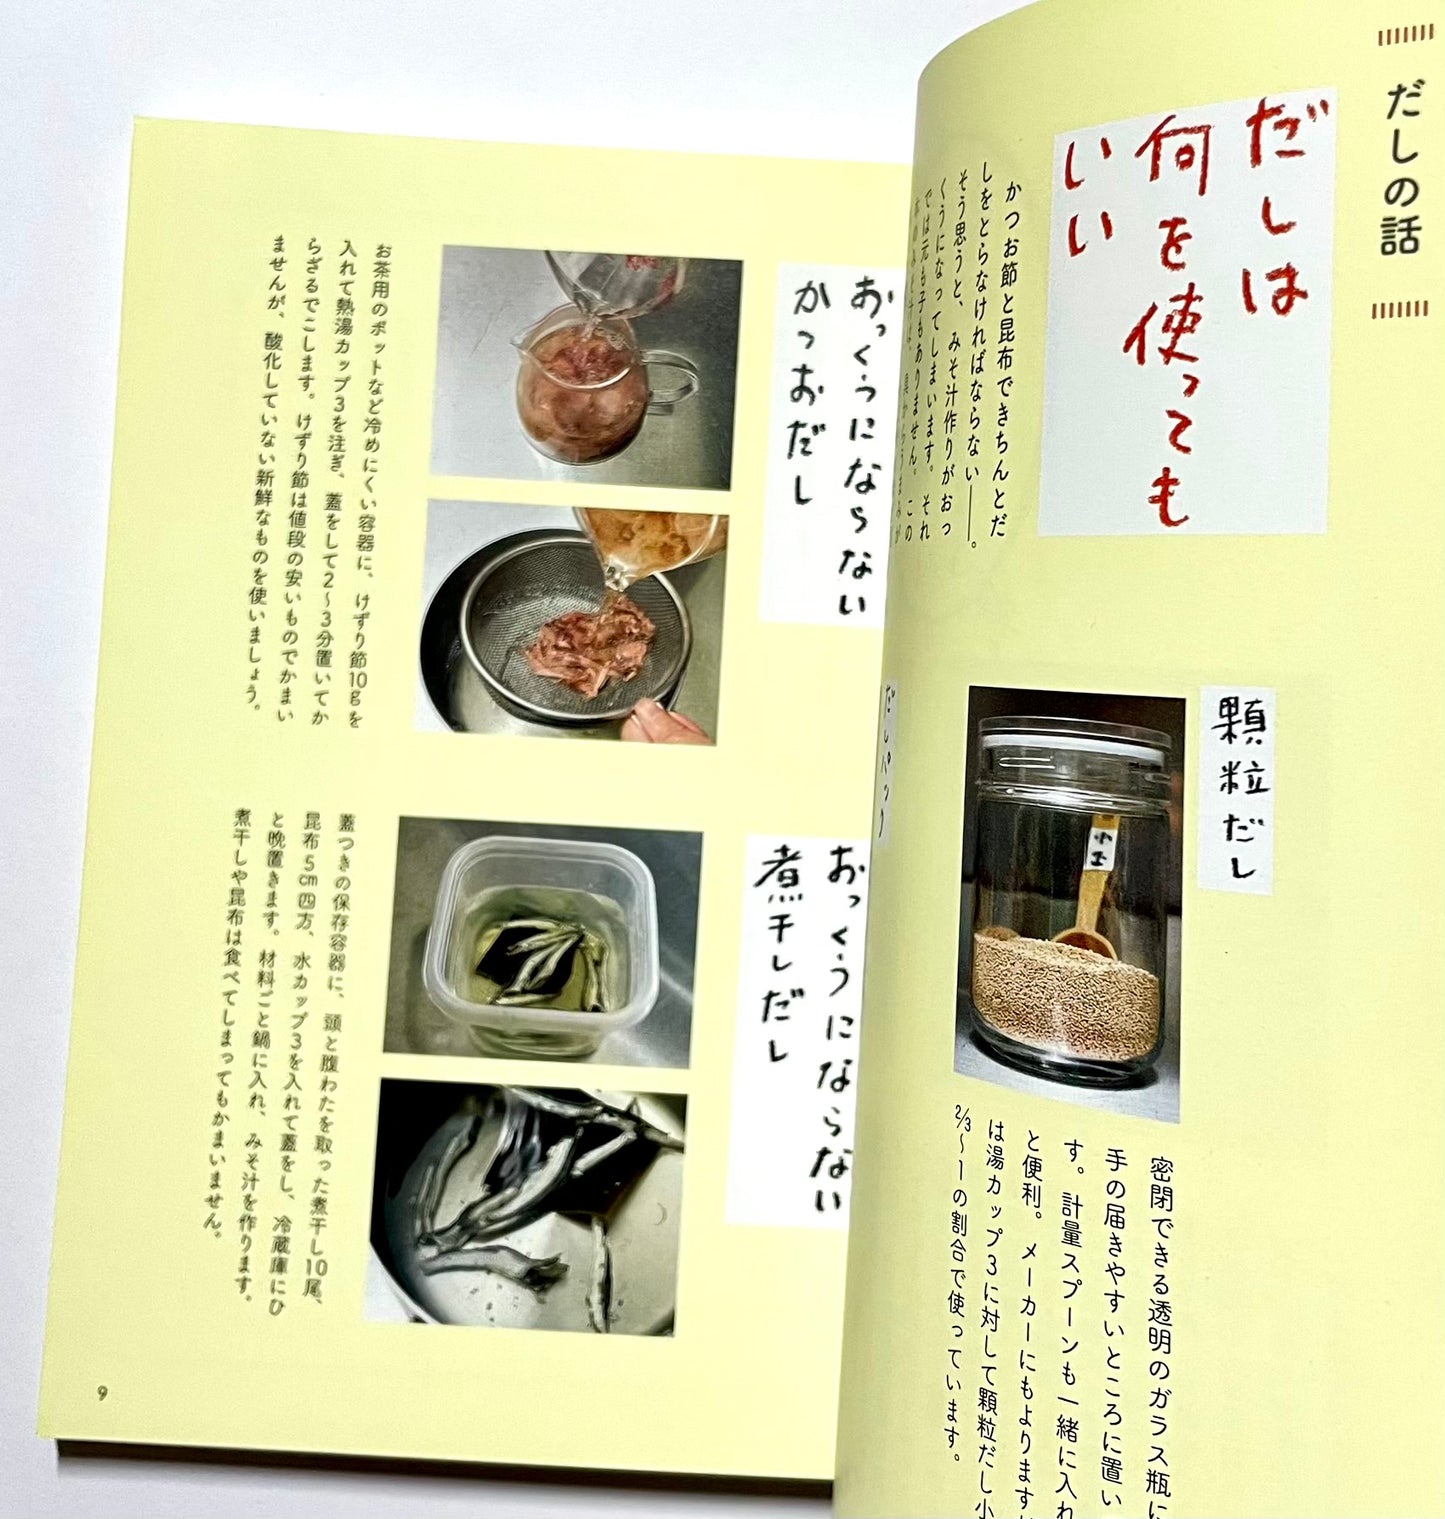 だしの話
だしは
何を使っても
いい
かつお節と昆布できちんとだ
しをとらなければならない――。
そう思うと、みそ汁作りがおっ
くうになってしまいます。それ
では元も子もありません。この
顆粒だし
小1
密閉できる透明のガラス瓶に
手の届きやすいところに置い
す。計量スプーンも一緒に入れ
と便利。メーカーにもよりますが
は湯カップ3に対して顆粒だし小
2/3〜1の割合で使っています。
だしパック
おっくうにならない
かつおだし
お茶用のポットなど冷めにくい容器に、けずり節10gを
入れて熱湯カップ3を注ぎ、蓋をして2〜3分置いてか
らざるでこします。けずり節は値段の安いものでかまい
ませんが、酸化していない新鮮なものを使いましょう。
おっくうにならない
煮干しだし
蓋つきの保存容器に、頭と腹わたを取った煮干し10尾、
昆布5cm四方、水カップ3を入れて蓋をし、冷蔵庫にひ
と晩置きます。材料ごと鍋に入れ、みそ汁を作ります。
煮干しや昆布は食べてしまってもかまいません。
9